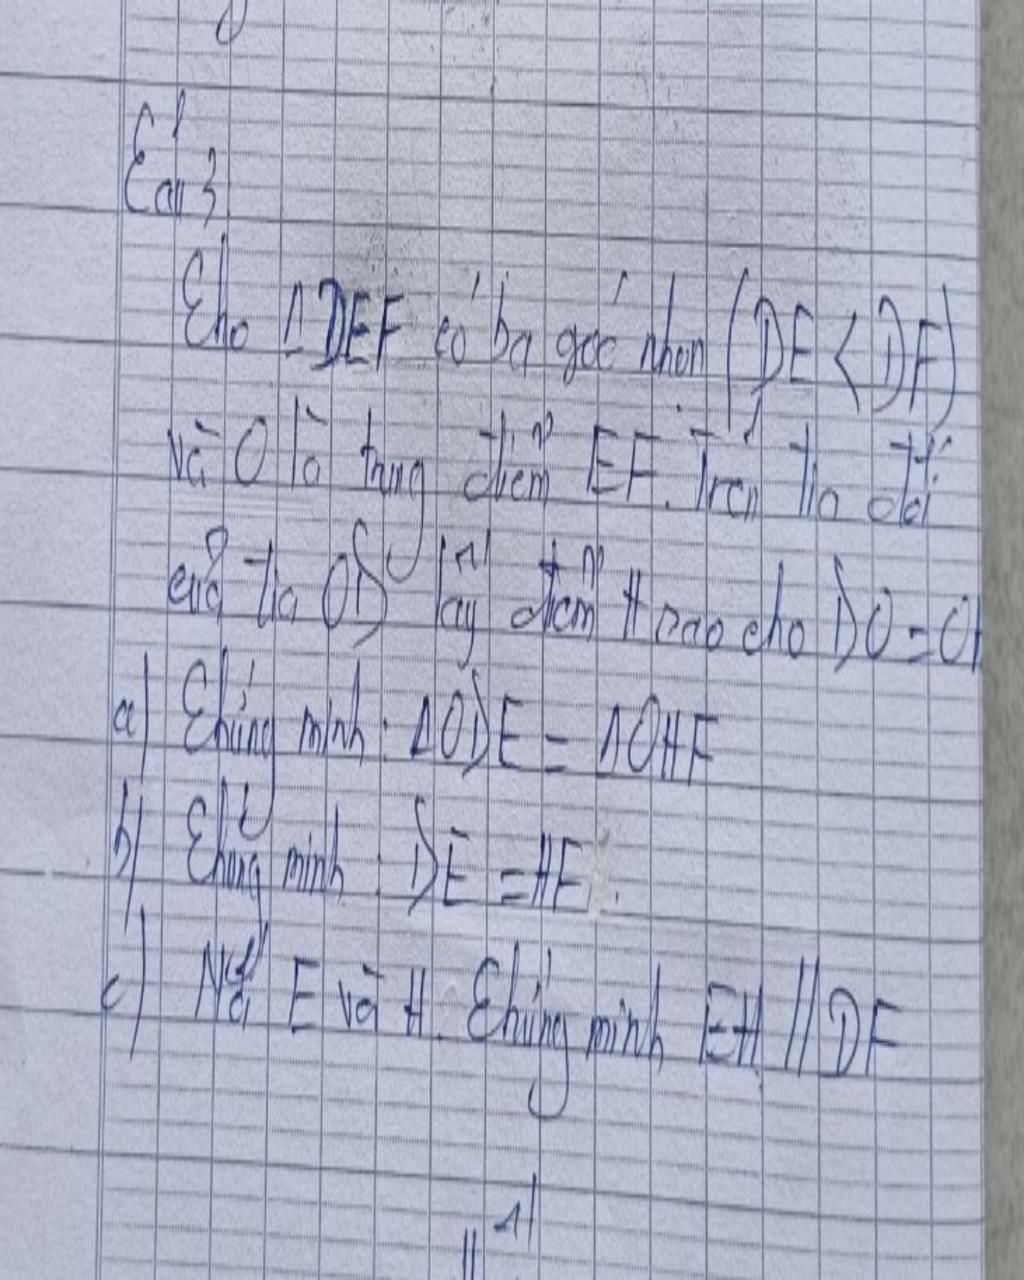 Câu 3
Cho ΔDEF có ba góc nhọn (DE < DF)
và O là trung điểm EF. Trên tia đối
của tia OD lấy điểm H sao cho DO = OH
a) Chứng minh : ΔODE = ΔOHF
b) Chứng minh : DE = HF.
c) Nối E và H. Chứng minh EH // DF